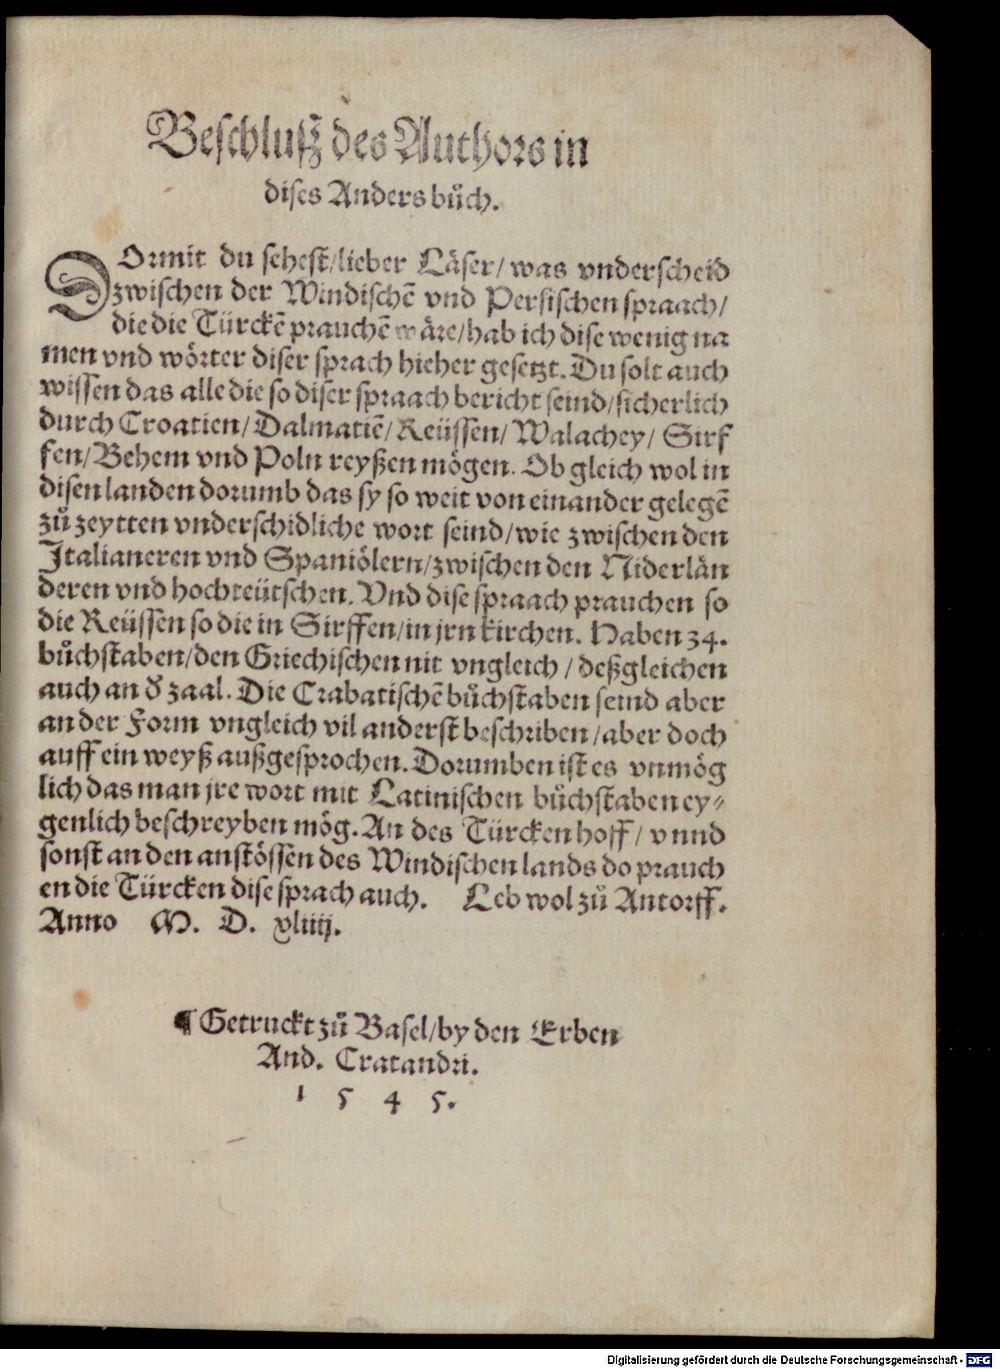 Beschluſz des Authors in
dises Anders bůch.
DOrmit du sehest/lieber Läser/ was vnderscheid
zwischen der Windischẽ vnd Persischen spraach/
die die Türckẽ prauchẽ wäre/hab ich dise wenig na
men vnd wörter diser sprach hieher gesetzt. Du solt auch
wissen das alle die so diser spraach bericht seind/sicherlich
durch Croatien/ Dalmatiẽ/ Reüssen/ Walachey/ Sirf
fen/ Behem vnd Poln reyßen mögen. Ob gleich wol in
disen landen dorumb das sy so weit von einander gelegẽ
zů zeytten vnderschidliche wort seind/wie zwischen den
Italianeren vnd Spaniölern/zwischen den Niderlän
deren vnd hochteütschen. Vnd dise spraach prauchen so
die Reüssen so die in Sirffen/in jrn kirchen. Haben 34.
bůchstaben/den Griechischen nit vngleich / deßgleichen
auch an d̕ zaal. Die Crabatischẽ bůchstaben seind aber
an der Form vngleich vil anderst beschriben /aber doch
auff ein weyß außgesprochen. Dorumben ist es vnmög
lich das man jre wort mit Latinischen bůchstaben ey⸗
genlich beschreyben mög. An des Türcken hoff/ vnnd
sonst an den anstössen des Windischen lands do prauch
en die Türcken dise sprach auch. Leb wol zů Antorff.
Anno M. D. xliiij.
¶ Getruckt zů Basel/by den Erben
And. Cratandri.
1 5 4 5.
Digitalisierung gefördert durch die Deutsche Forschungsgemeinschaft - DFG